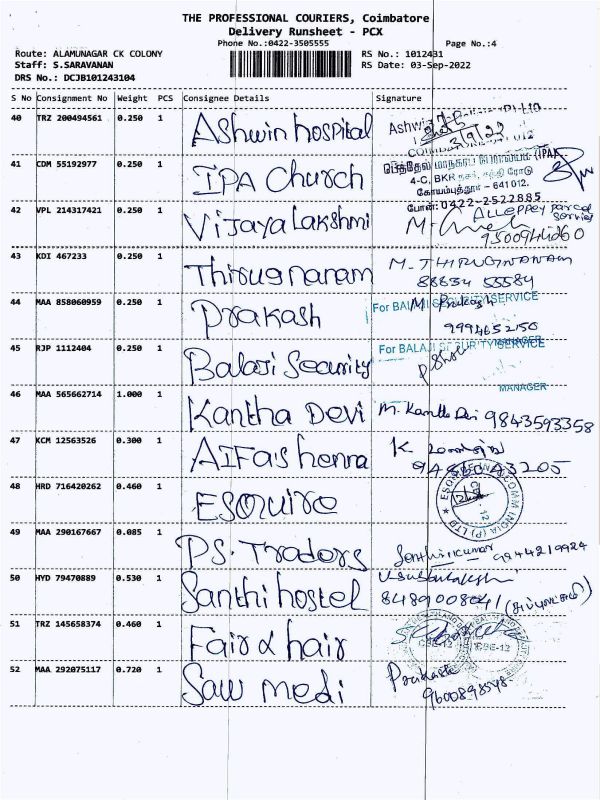 THE PROFESSIONAL COURIERS, Coimbatore
Delivery Runsheet - PCX
Phone No.:0422-3505555
Page No.:4
Route: ALAMUNAGAR CK COLONY
RS No.: 1012431
Staff: S.SARAVANAN
RS Date: 03-Sep-2022
DRS No.: DCJB101243104
S No Consignment No Weight PCS Consignee Details Signature
40 TRZ 200494561 0.250 1 Ashwin hospital Ashwin
3/9/22
41 CDM 55192977 0.250 1 IPA Church
4-C, BKR நகர், சக்தி ரோடு
கோயம்புத்தூர் - 641012.
போன்: 0422-2522885
42 VPL 214317421 0.250 1 Vijaya lakshmi
Alleppey parcel
service
9500944060
43 KDI 467233 0.250 1 Thirugnanam M. THIRUGNANAM
88634 55584
44 MAA 858060959 0.250 1 Prakash M Prakash
For BALAJI SECURITY SERVICE
MANAGER
45 RJP 1112404 0.250 1 Balaji Security
For BALAJI SECURITY SERVICE
MANAGER
46 MAA 565662714 1.000 1 Kantha Devi M. Kantha Devi 9843593358
47 KCM 12563526 0.300 1 AIFa's henna K
48 HRD 716420262 0.460 1 Esquire
49 MAA 290167667 0.085 1 PS. Tradors Senthilkumar 9944219924
50 HYD 79470889 0.530 1 Santhi hostel
8489008041
51 TRZ 145658374 0.460 1 Fair & hair
CBE-12
52 MAA 292075117 0.720 1 Saw medi